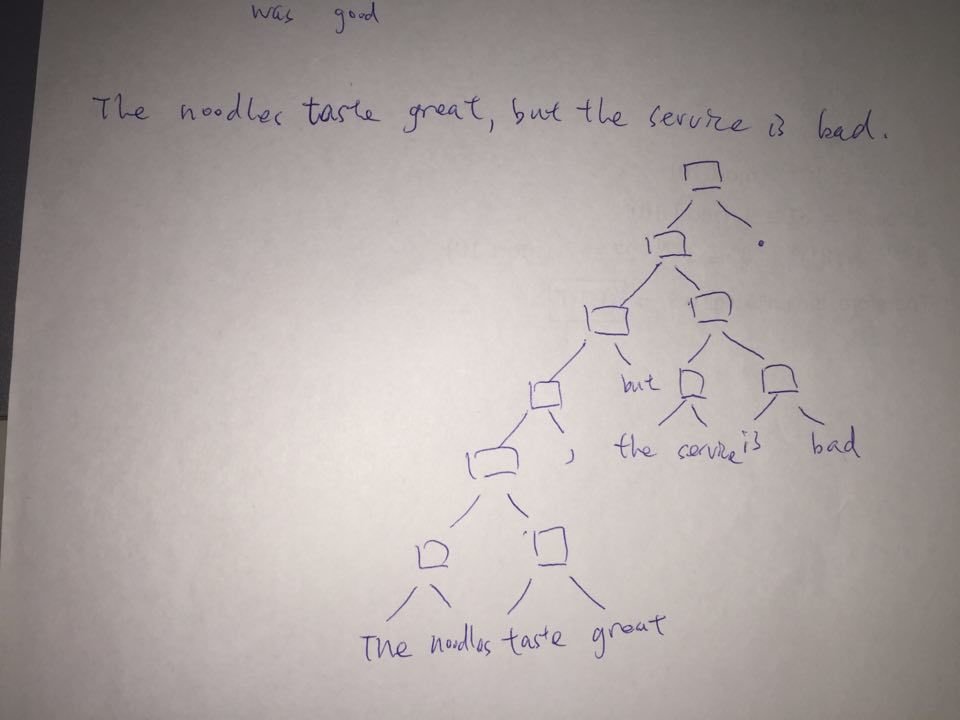 was good
The noodles taste great, but the service is bad.
.
but
, the service is bad
The noodles taste great